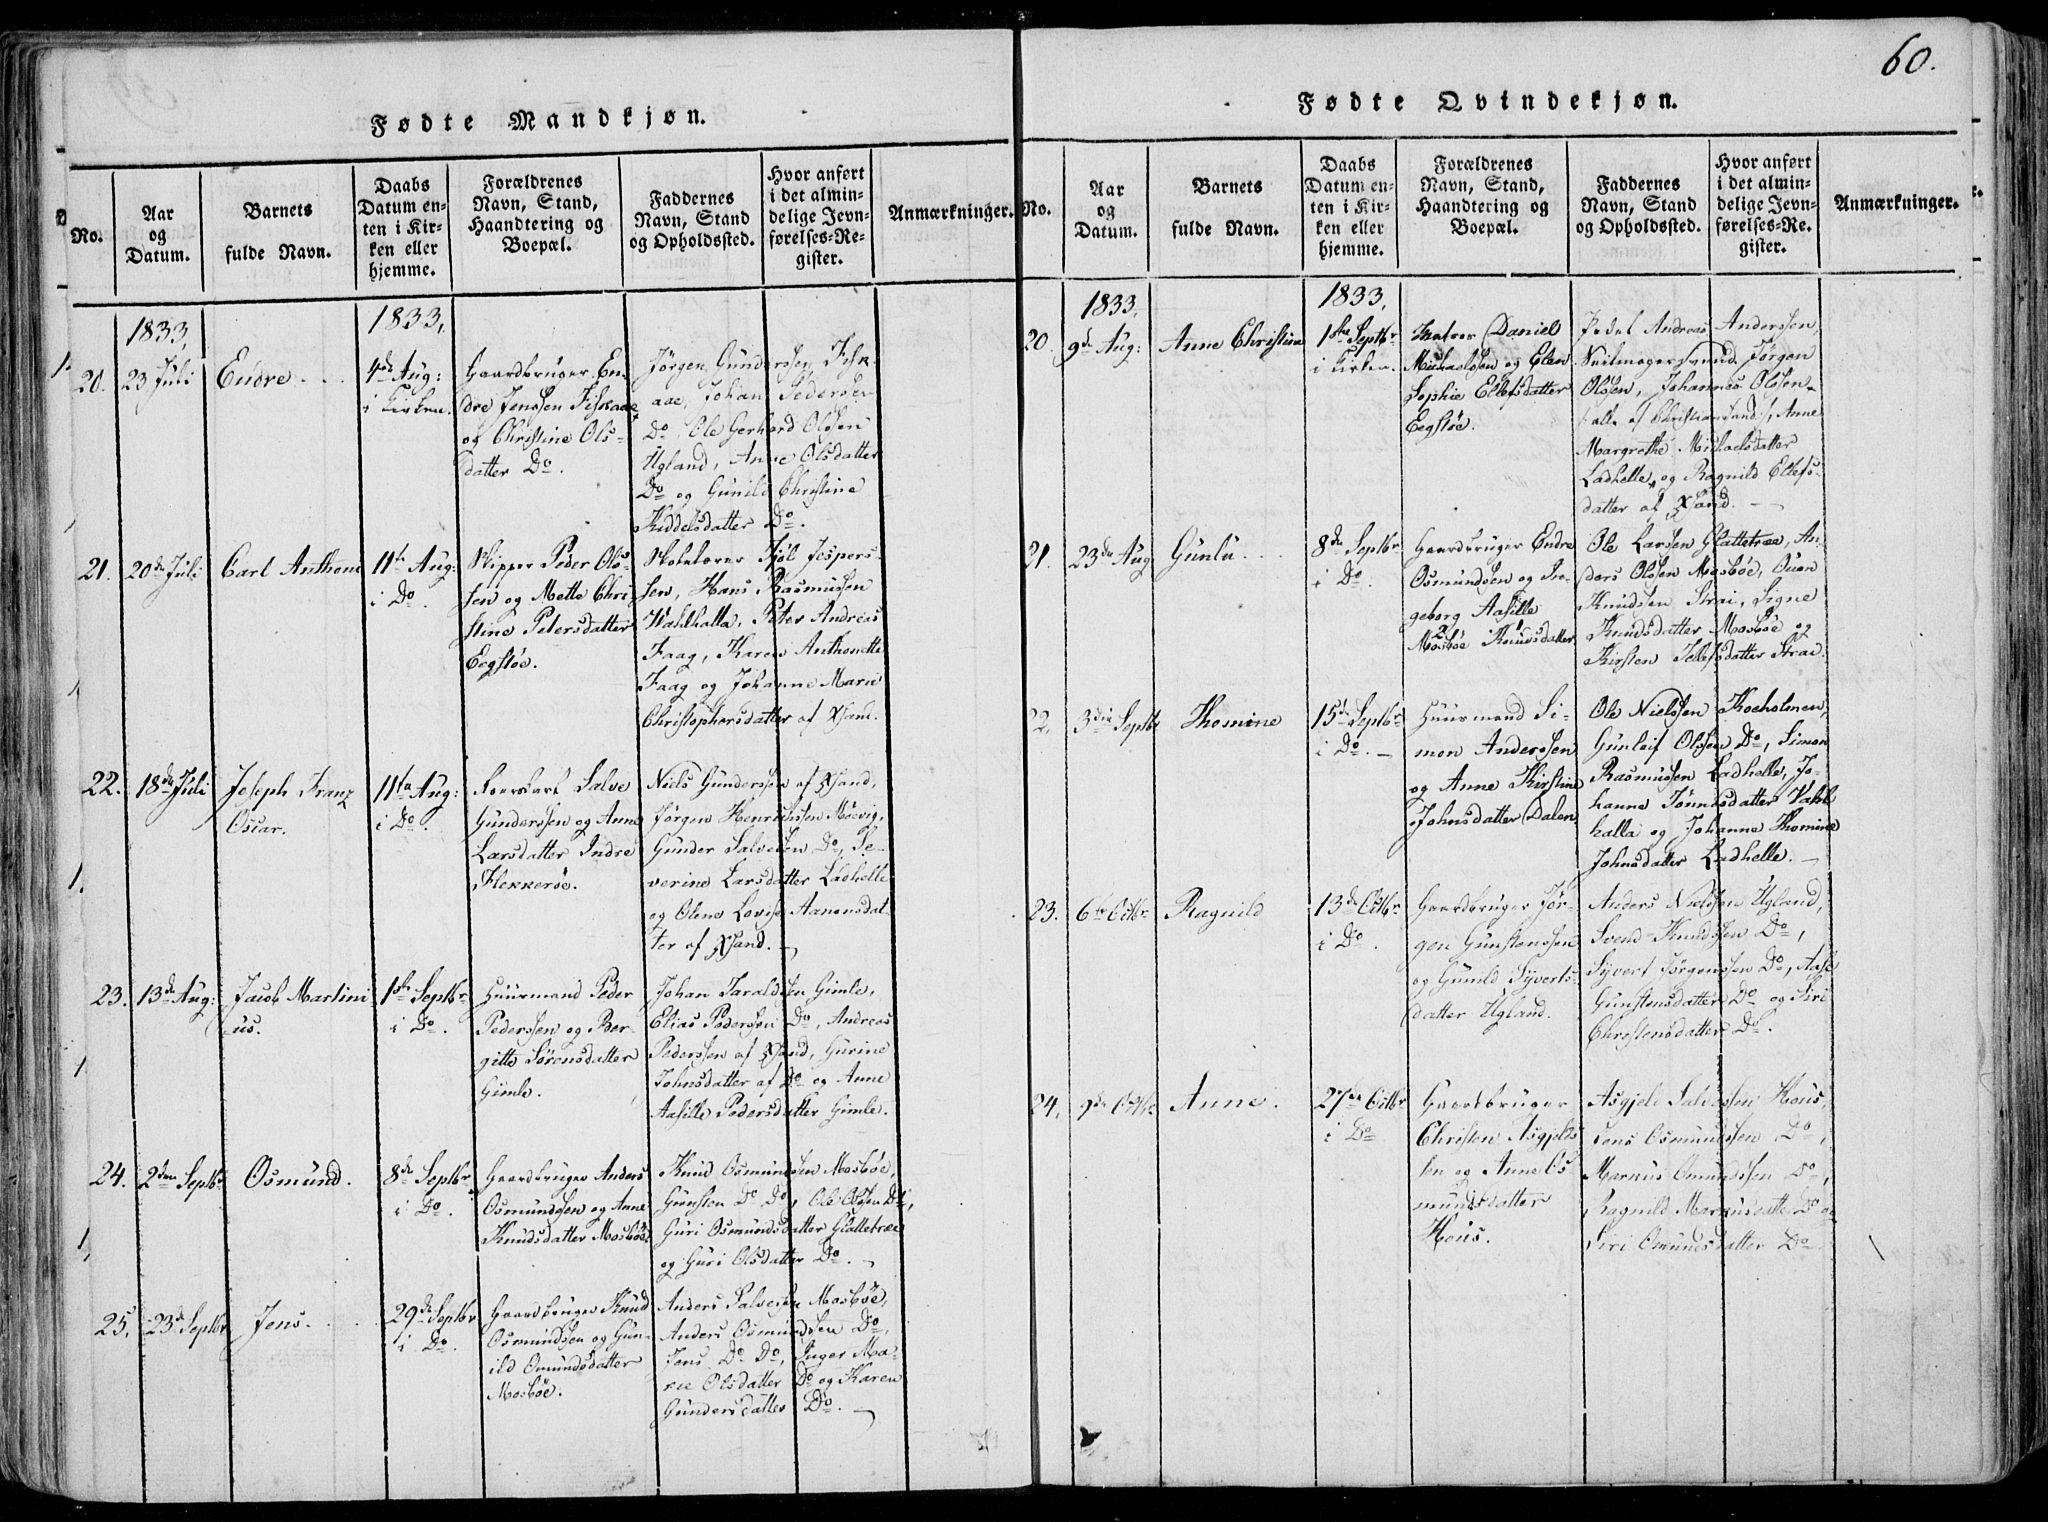 60.
Fødte Mandkjøn.
No.
Aar
og
Datum.
Barnets
fulde Navn.
Daabs
Datum en-
ten i Kir-
ken eller
hjemme.
Forældrenes
Navn, Stand,
Haandtering og
Boepæl.
Faddernes
Navn, Stand
og Opholdssted.
Hvor anført
i det almin-
delige Jevn-
førelses-Re-
gister.
Anmærkninger.
1833,
1833,
20.
23 Juli
Endre
4de Aug:
i Kirken.
Gaardbruger En-
dre Jenssen Fiskaae
og Christine Ols-
datter Do.
Jörgen Gunderssen Fisk-
aae, Johan Pedersen
Do, Ole Gerhard Olssen
Ugland, Anne Olsdatter
Do og Gunild Christine
Kiddelsdatter Do.
21.
20de Juli
Carl Anthon
11te Aug:
i Do.
Skipper Peder Ols-
sen og Mette Chri-
stine Petersdatter
Eegsföe.
Skolelærer Kjöl Jespers-
sen, Hans Rasmussen
Wahlhalla, Peter Andreas
Faag, Karen Anthonette
Faag og Johanne Marie
Christophersdatter af Xsand.
22.
18de Juli
Joseph Franz
Oscar.
11te Aug:
i Do.
Salve
Gunderssen og Anne
Larsdatter Indre
Flekkeröe.
Niels Gunderssen af Xsand,
Jörgen Henrichssen Möevig,
Gunder Salvesen Do, Se-
verine Larsdatter Ladhelle
og Olene Lovise Aanensdat-
ter af Xsand.
23.
13de Aug:
Jacob Martini
us.
1ste Septbr
i Do.
Huusmand Peder
Pederssen og Ber-
gitte Sörensdatter
Gimle.
Johan Taraldsen Gimle,
Elias Pederssen Do, Andreas
Pederssen af Xsand, Gurine
Johnsdatter af Do og Anne
Aasille Pedersdatter Gimle.
24.
2den Septbr
Osmund.
8de Septbr
i Do.
Gaardbruger Anders
Osmundssen og Anne
Knudsdatter Mosböe
Knud Osmundssen Mosböe,
Gunsten Do Do, Ole Olssen Do,
Guri Osmundsdatter Glattetræe
og Guri Olsdatter Do.
25.
23de Septbr
Jens.
29de Septbr
i Do.
Gaardbruger Knud
Osmundssen og Gun-
ild Omundsdatter
Mosböe.
Anders Salvessen Mosböe,
Anders Osmundssen Do,
Jens Do Do, Inger Ma-
rie Olsdatter Do og Karen
Gundersdatter Do.
Fødte Qvindekjøn.
No.
Aar
og
Datum.
Barnets
fulde Navn.
Daabs
Datum en-
ten i Kir-
ken eller
hjemme.
Forældrenes
Navn, Stand,
Haandtering og
Boepæl.
Faddernes
Navn, Stand
og Opholdssted.
Hvor anført
i det almin-
delige Jevn-
førelses-Re-
gister.
Anmærkninger.
1833,
1833,
20.
9de Aug:
Anne Christine
1ste Septbr
i Kirken.
Daniel
Michaelssen og Elen
Sophie Ellefsdatter
Eegsföe.
Andreas Anderssen,
Seilmagersvend Jörgen
Olssen, Johannes Olssen
alle af Christianssand, Anne
Margrethe Michaelsdatter
Ladhelle og Ragnild Ellefs-
datter af Xsand.
21.
23de Aug
Gunlu
8de Septbr
i Do.
Gaardbruger Endre
Osmundssen og In-
geborg Aasille
Mosböe Knudsdatter
Ole Larssen Glattetræe, An-
ders Olssen Mosböe, Ouen
Knudssen Strai, Signe
Knudsdatter Mosböe og
Kirsten Tellefsdatter Strai.
22.
3die Septbr
Thomine
15de Septbr
i Do.
Huusmand Si-
mon Anderssen
og Anne Kirstine
Johnsdatter Dalen
Ole Nielssen Koeholmen,
Gunleif Olssen Do, Simon
Rasmussen Ladhelle, Jo-
hanne Tönnesdatter Vahl
halla og Johanne Thomine
Johnsdatter Ladhelle.
23.
6te Octbr
Ragnild
13de Octbr
i Do.
Gaardbruger Jör-
gen Gunstenssen
og Gunild Syverts-
datter Ugland.
Anders Nielssen Ugland,
Svend Knudssen Do,
Syvert Jörgenssen Do, Aase
Gunstensdatter Do og Siri
Christensdatter Do.
24.
9de Octbr
Anne.
27de Octbr
i Do
Gaardbruger
Christen Asgjelds
sen og Anne Os
mundsdatter
Hous.
Asgjeld Salvessen Hous,
Jens Osmundssen Do,
Markus Omundssen Do,
Ragnild Markusdatter Do og
Siri Omundsdatter Do.